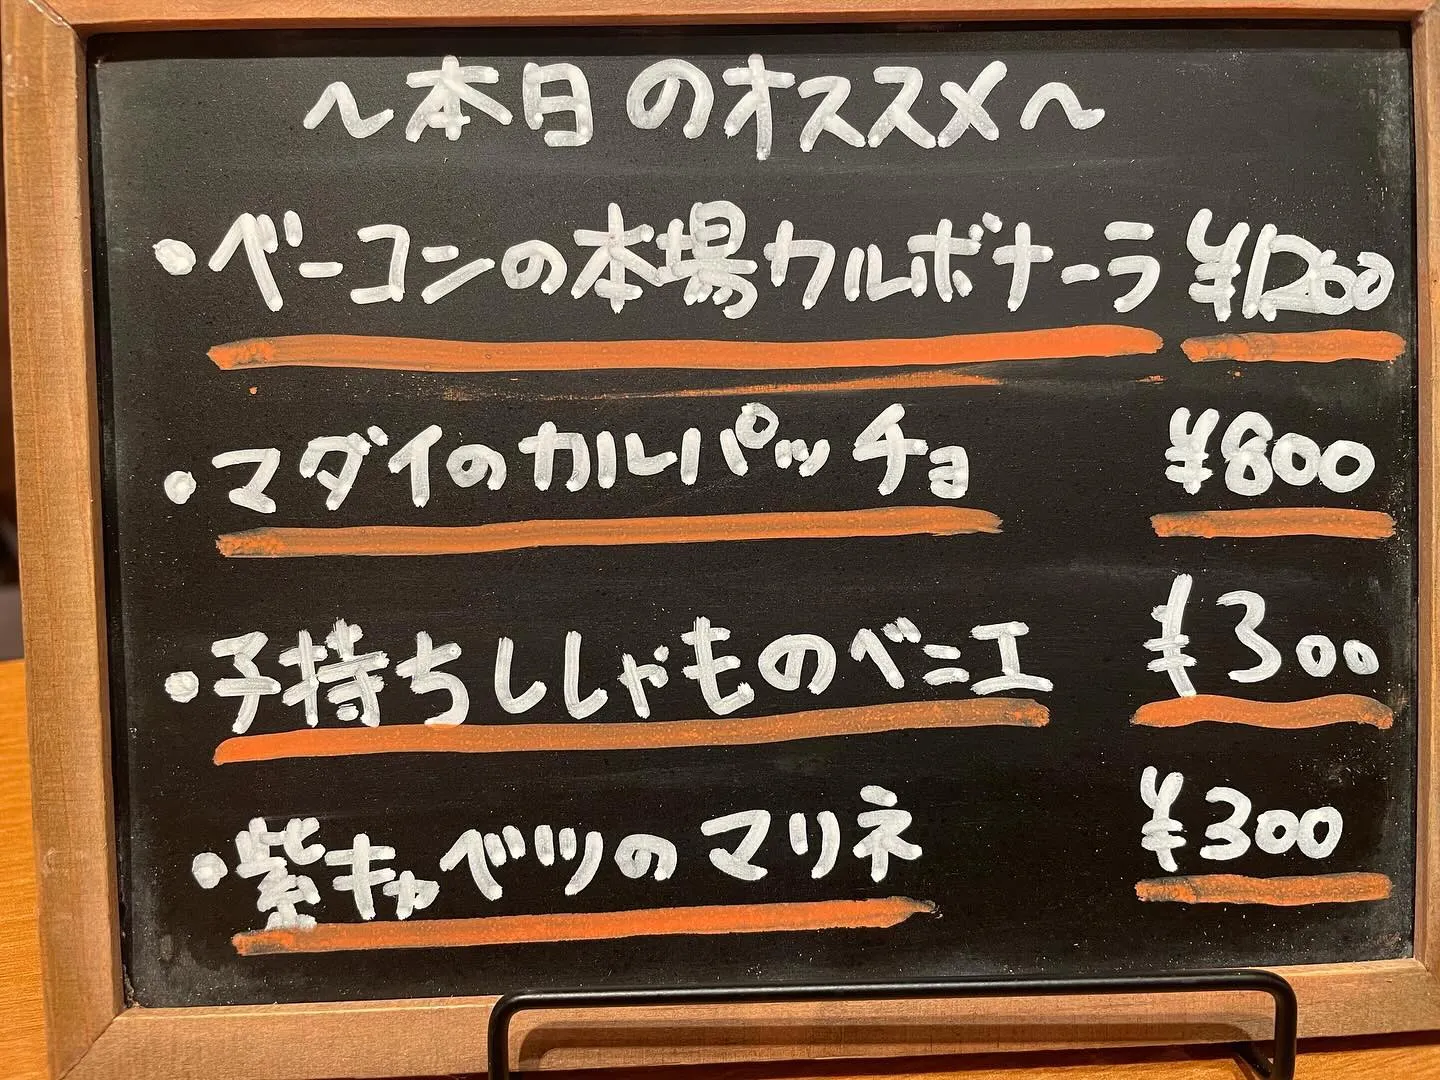 ～本日のオススメ～
・ベーコンの本場カルボナーラ ¥1260
・マダイのカルパッチョ ¥800
・子持ちししゃものベニエ ¥300
・紫キャベツのマリネ ¥300